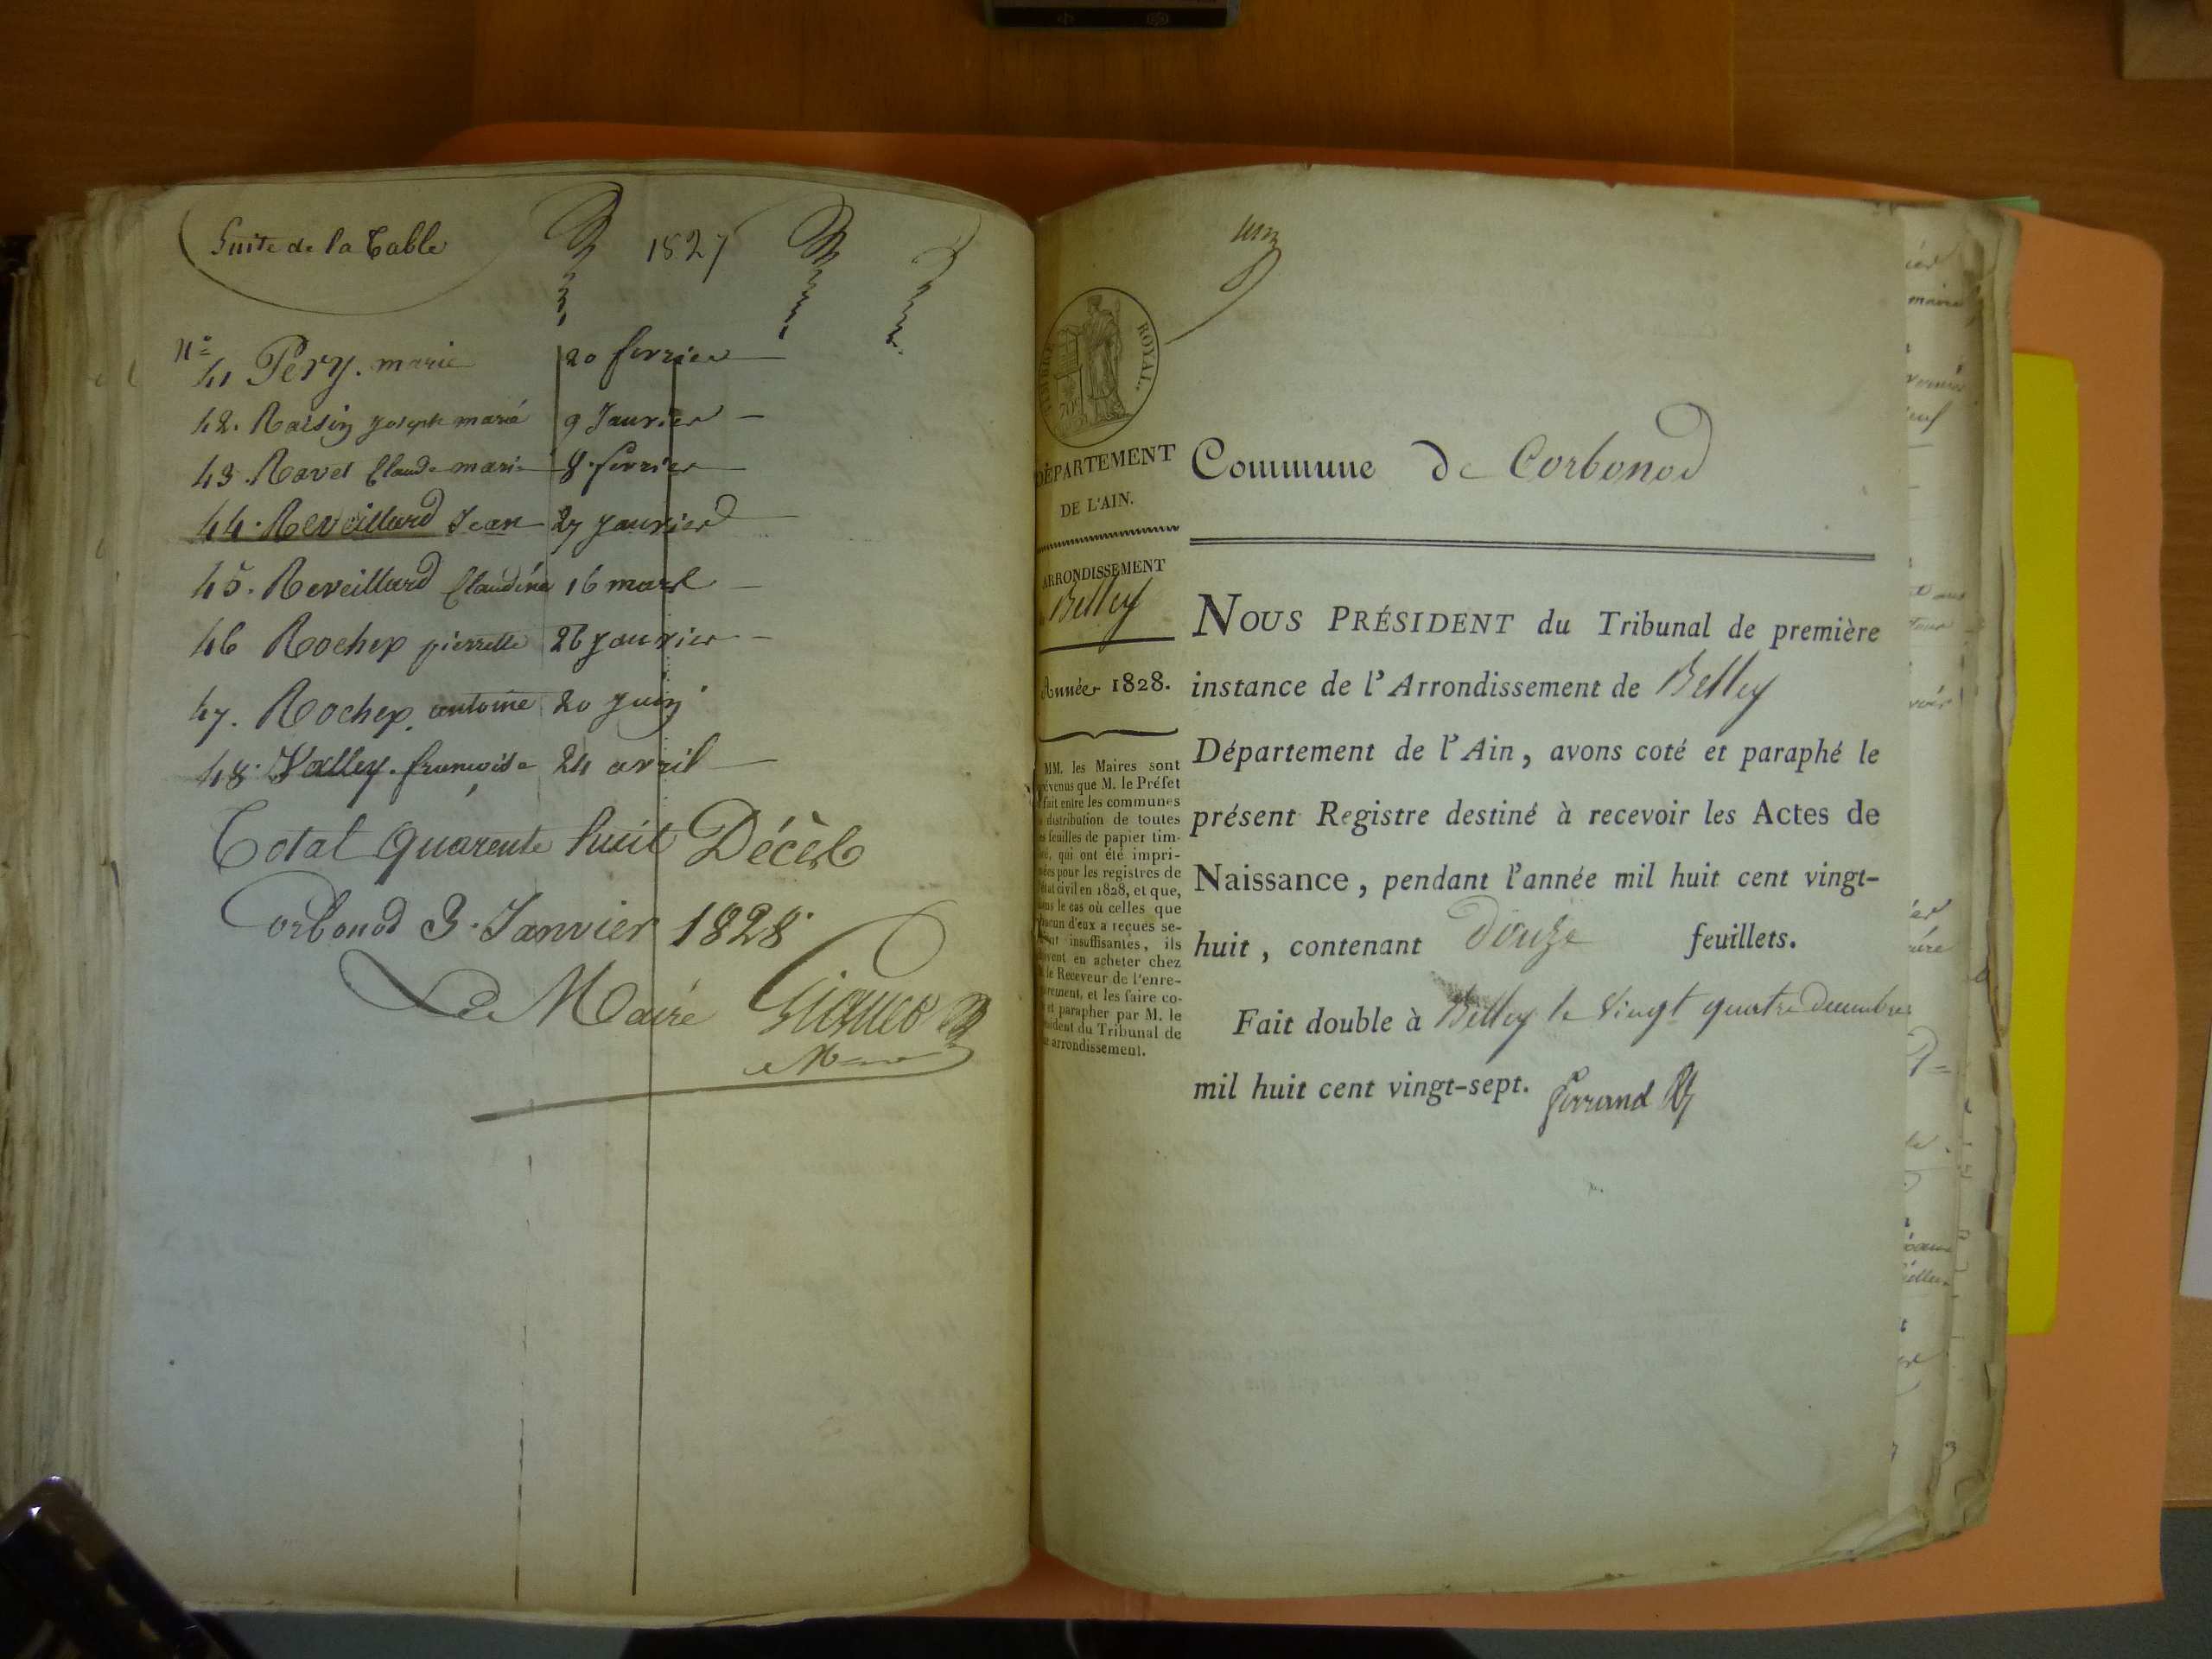 Suite de la Table 1827
N°
41 Pery. marie 20 fevrier
42. Raisin joseph marie 9 Janvier
43. Ravet Claude marie 8 fevrier
44. Reveillard Jean 27 janvier
45. Reveillard Claudine 16 mars
46 Rochex pierrette 26 janvier
47. Rochex. antoine 20 juin
48. Valley. françoise 24 avril
Total quarente huit Décès
Corbonod 3. Janvier 1828.
Le Maire
TIMBRE ROYAL.
DÉPARTEMENT
DE L'AIN.
ARRONDISSEMENT
de Belley
Année 1828.
MM. les Maires sont
prévenus que M. le Préfet
a fait entre les communes
la distribution de toutes
les feuilles de papier tim-
bré, qui ont été impri-
mées pour les registres de
l'état civil en 1828, et que,
dans le cas où celles que
chacun d'eux a reçues se-
raient insuffisantes, ils
doivent en acheter chez
M. le Receveur de l'enre-
gistrement, et les faire co-
ter et parapher par M. le
Président du Tribunal de
arrondissement.
Commune de Corbonod
NOUS PRÉSIDENT du Tribunal de première
instance de l'Arrondissement de Belley
Département de l'Ain, avons coté et paraphé le
présent Registre destiné à recevoir les Actes de
Naissance, pendant l'année mil huit cent vingt-
huit, contenant douze feuillets.
Fait double à Belley le vingt quatre decembre
mil huit cent vingt-sept. ferrand